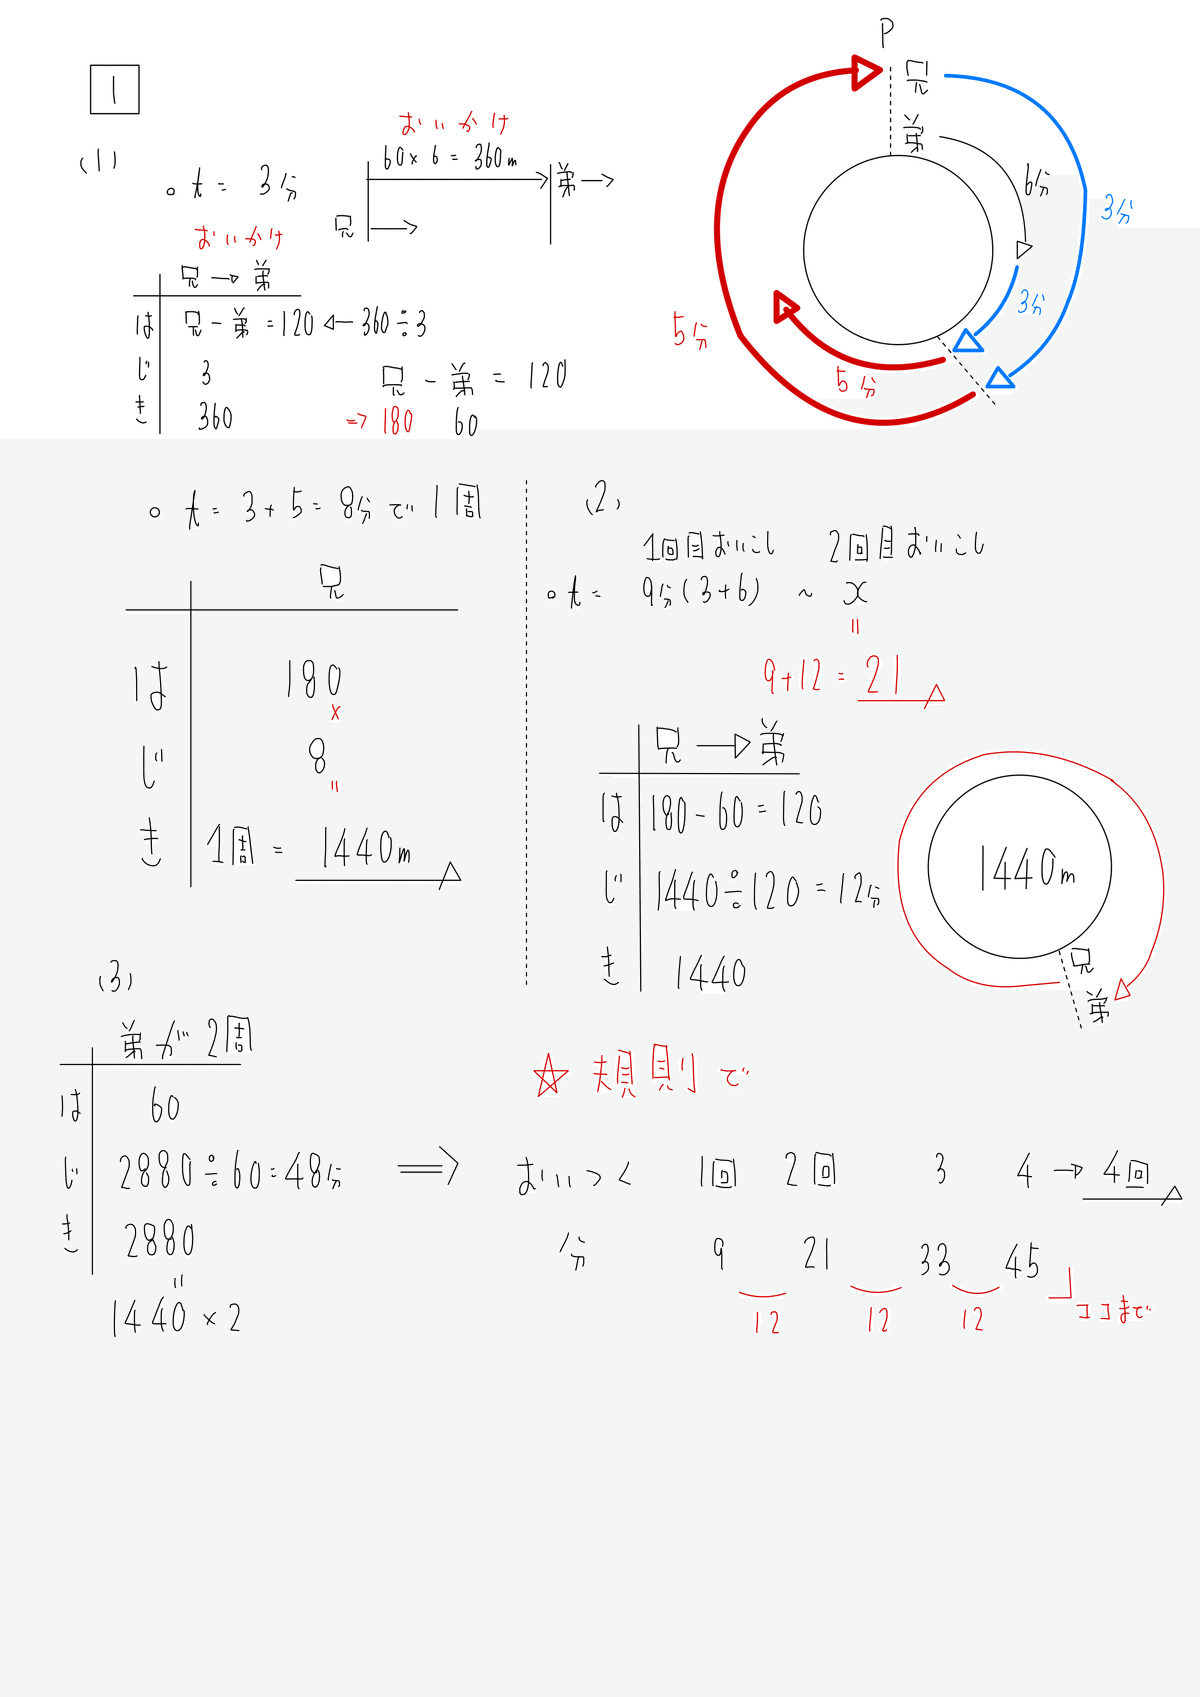 1
P
(1)
t = 3分
おいかけ
60×6 = 360m
兄→
弟→
おいかけ
兄→弟
は 兄-弟=120 ← 360÷3
じ 3
き 360
兄 - 弟 = 120
⇒ 180 60
兄
弟
6分
3分
3分
5分
5分
t = 3+5= 8分で1周
兄
は 180
×
じ 8
=
き 1周 = 1440m
(2)
1回目おいこし 2回目おいこし
t = 9分(3+6) ~ x
=
9+12 = 21
兄→弟
は 180-60=120
じ 1440÷120=12分
き 1440
1440m
兄
弟
(3)
弟が2周
は 60
じ 2880÷60=48分
き 2880
=
1440×2
⇒
☆ 規則で
おいつく 1回 2回 3 4 → 4回
分 9 21 33 45
12 12 12
ココまで